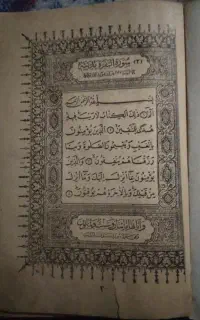 (٢) سورة البقرة مدنية
بسم الله الرحمن الرحيم
الم ذلك الكتاب لا ريب فيه
هدى للمتقين ۝ الذين يؤمنون
بالغيب ويقيمون الصلوة ومما
رزقنهم ينفقون ۝ والذين
يؤمنون بما أنزل إليك وما أنزل
من قبلك وبالآخرة هم يوقنون ۝